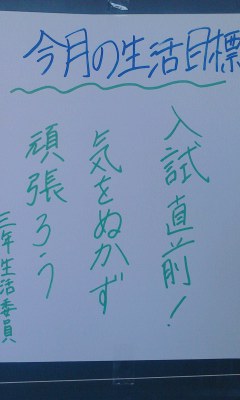 今月の生活目標
入試直前!
気をぬかず
頑張ろう
三年生活委員